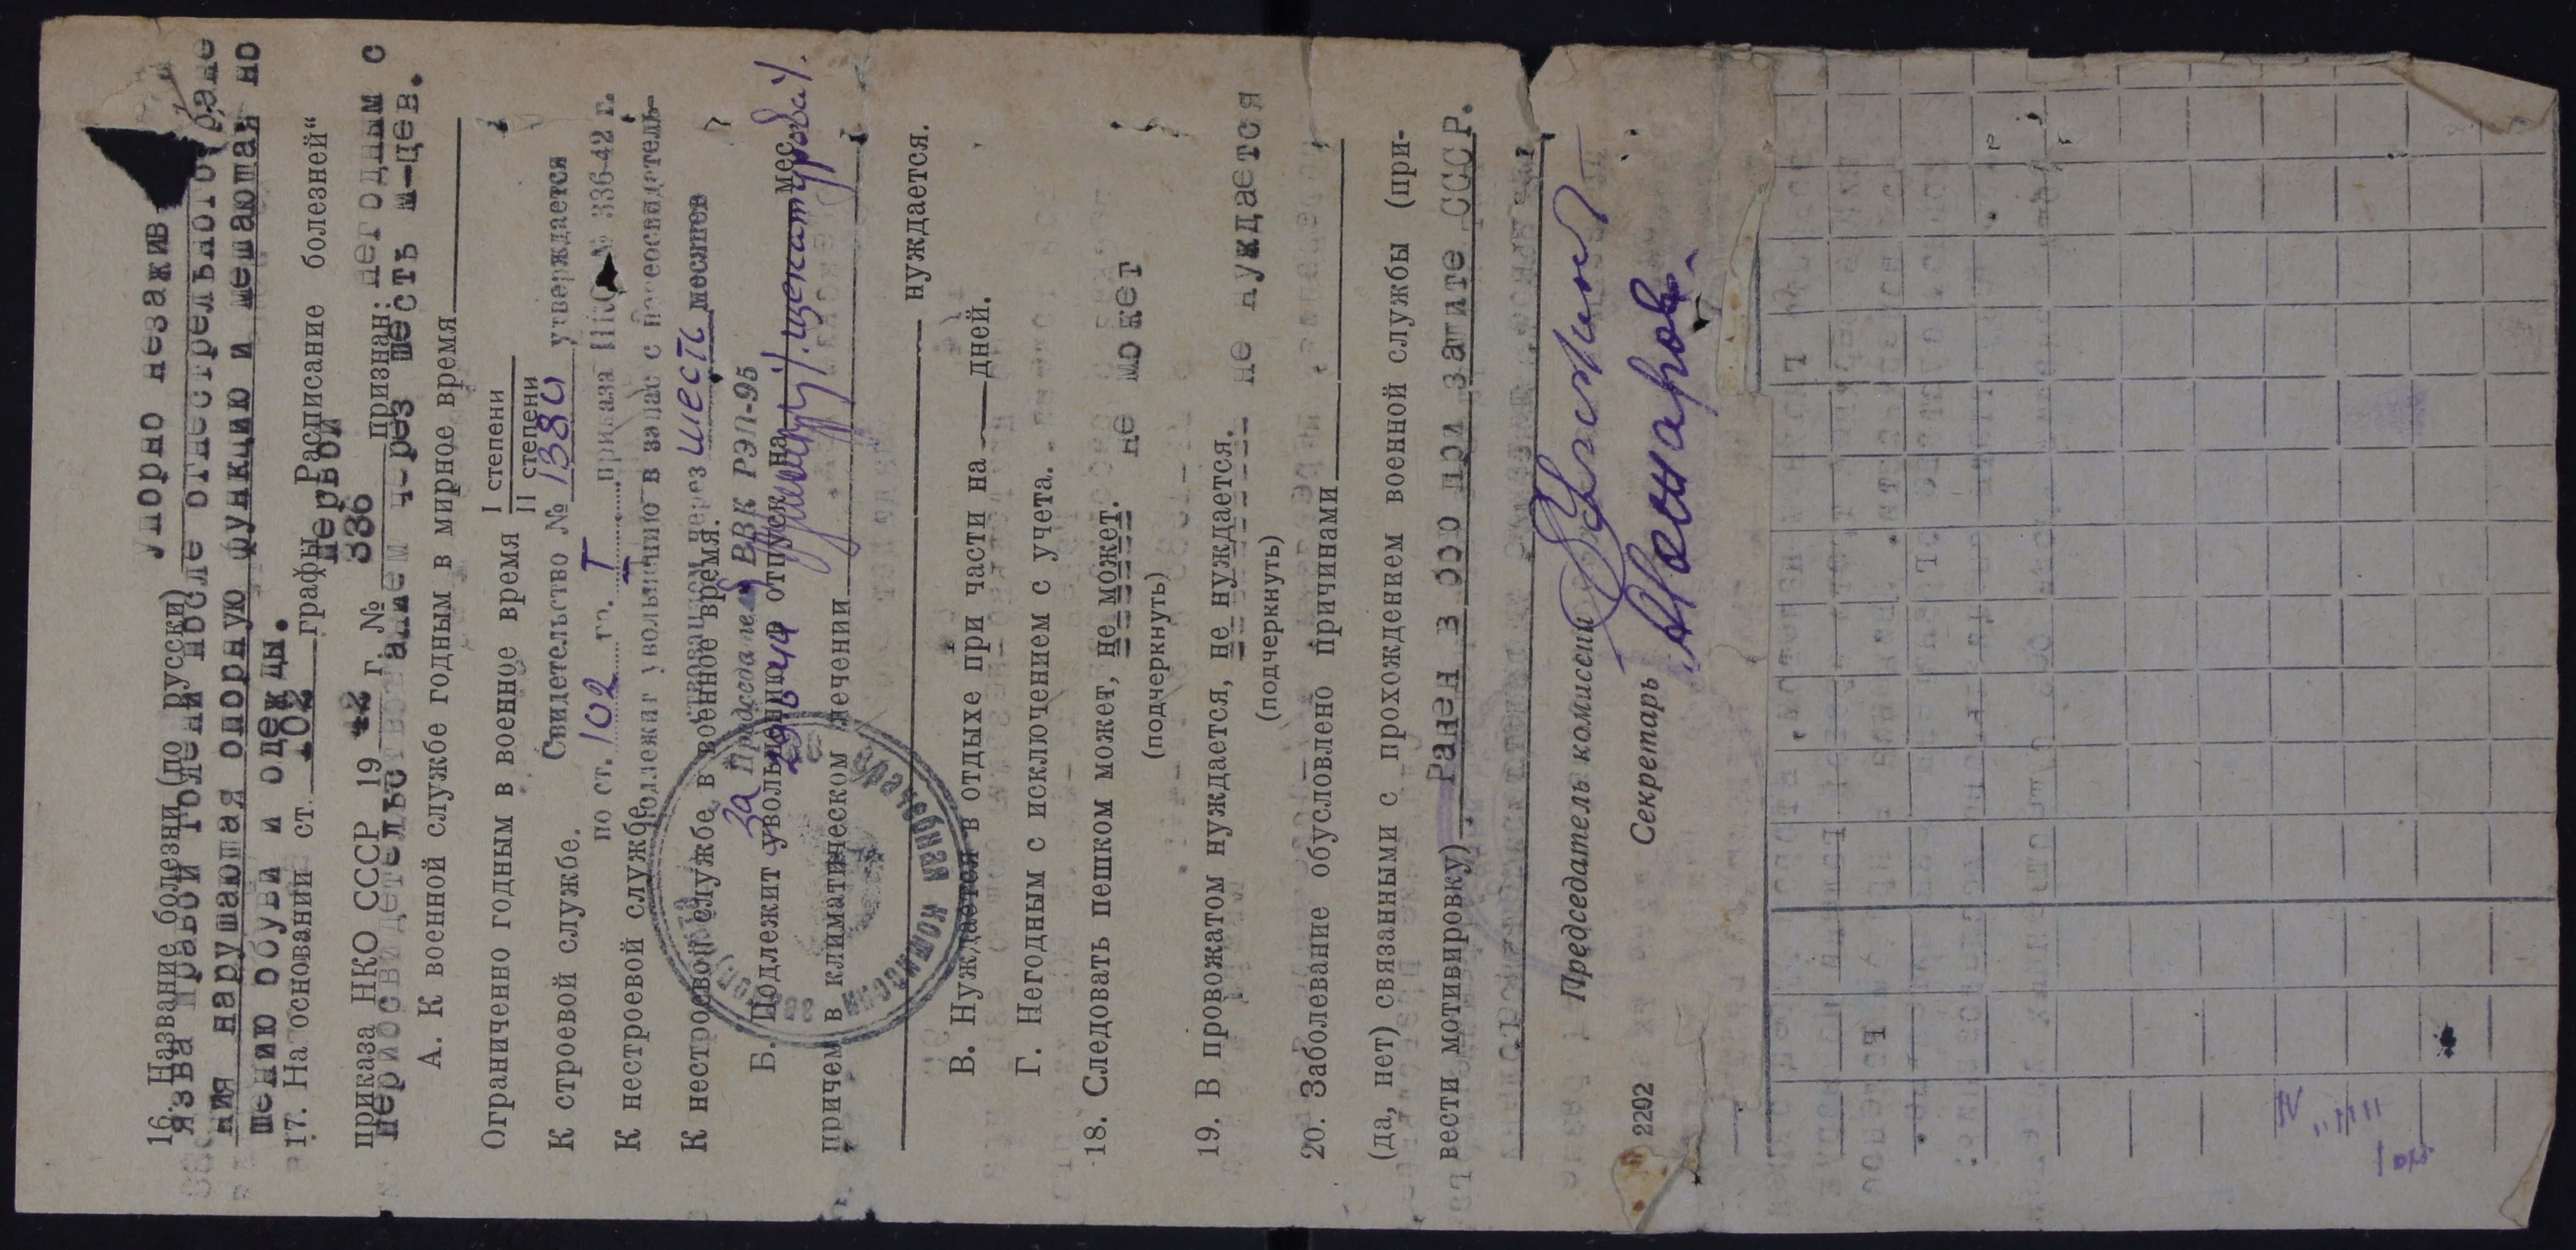 16. Название болезни (по русски) Упорно незажив
язва правой голени после огнестрельного ране
ния нарушающая опорную функцию и мешающая но
шению обуви и одежды.
17. На основании ст. 102 графы первой „Расписание болезней“
приказа НКО СССР 1942 г. № 336 признан: негодным с
переосвидетельствованием через шесть м-цев.
А. К военной службе годным в мирное время
Ограниченно годным в военное время I степени
II степени
К строевой службе.
Свидетельство № 1380 утверждается
по ст. 102 гр. I приказа НКО № 336-42 г.
К нестроевой службе
подлежит увольнению в запас с переосвидетель-
ствованием через шесть месяцев
К нестроевой службе в военное время.
За Председателя ВВК РЭП-95
Б. Подлежит увольнению в отпуск на мес.
причем в климатическом лечении
нуждается.
В. Нуждается в отдыхе при части на дней.
Г. Негодным с исключением с учета.
18. Следовать пешком может, не может. не может
(подчеркнуть)
19. В провожатом нуждается, не нуждается. не нуждается
(подчеркнуть)
20. Заболевание обусловлено причинами
(да, нет) связанными с прохождением военной службы (при-
вести мотивировку) Ранен в бою при защите СССР.
Председатель комиссии
Секретарь
2202